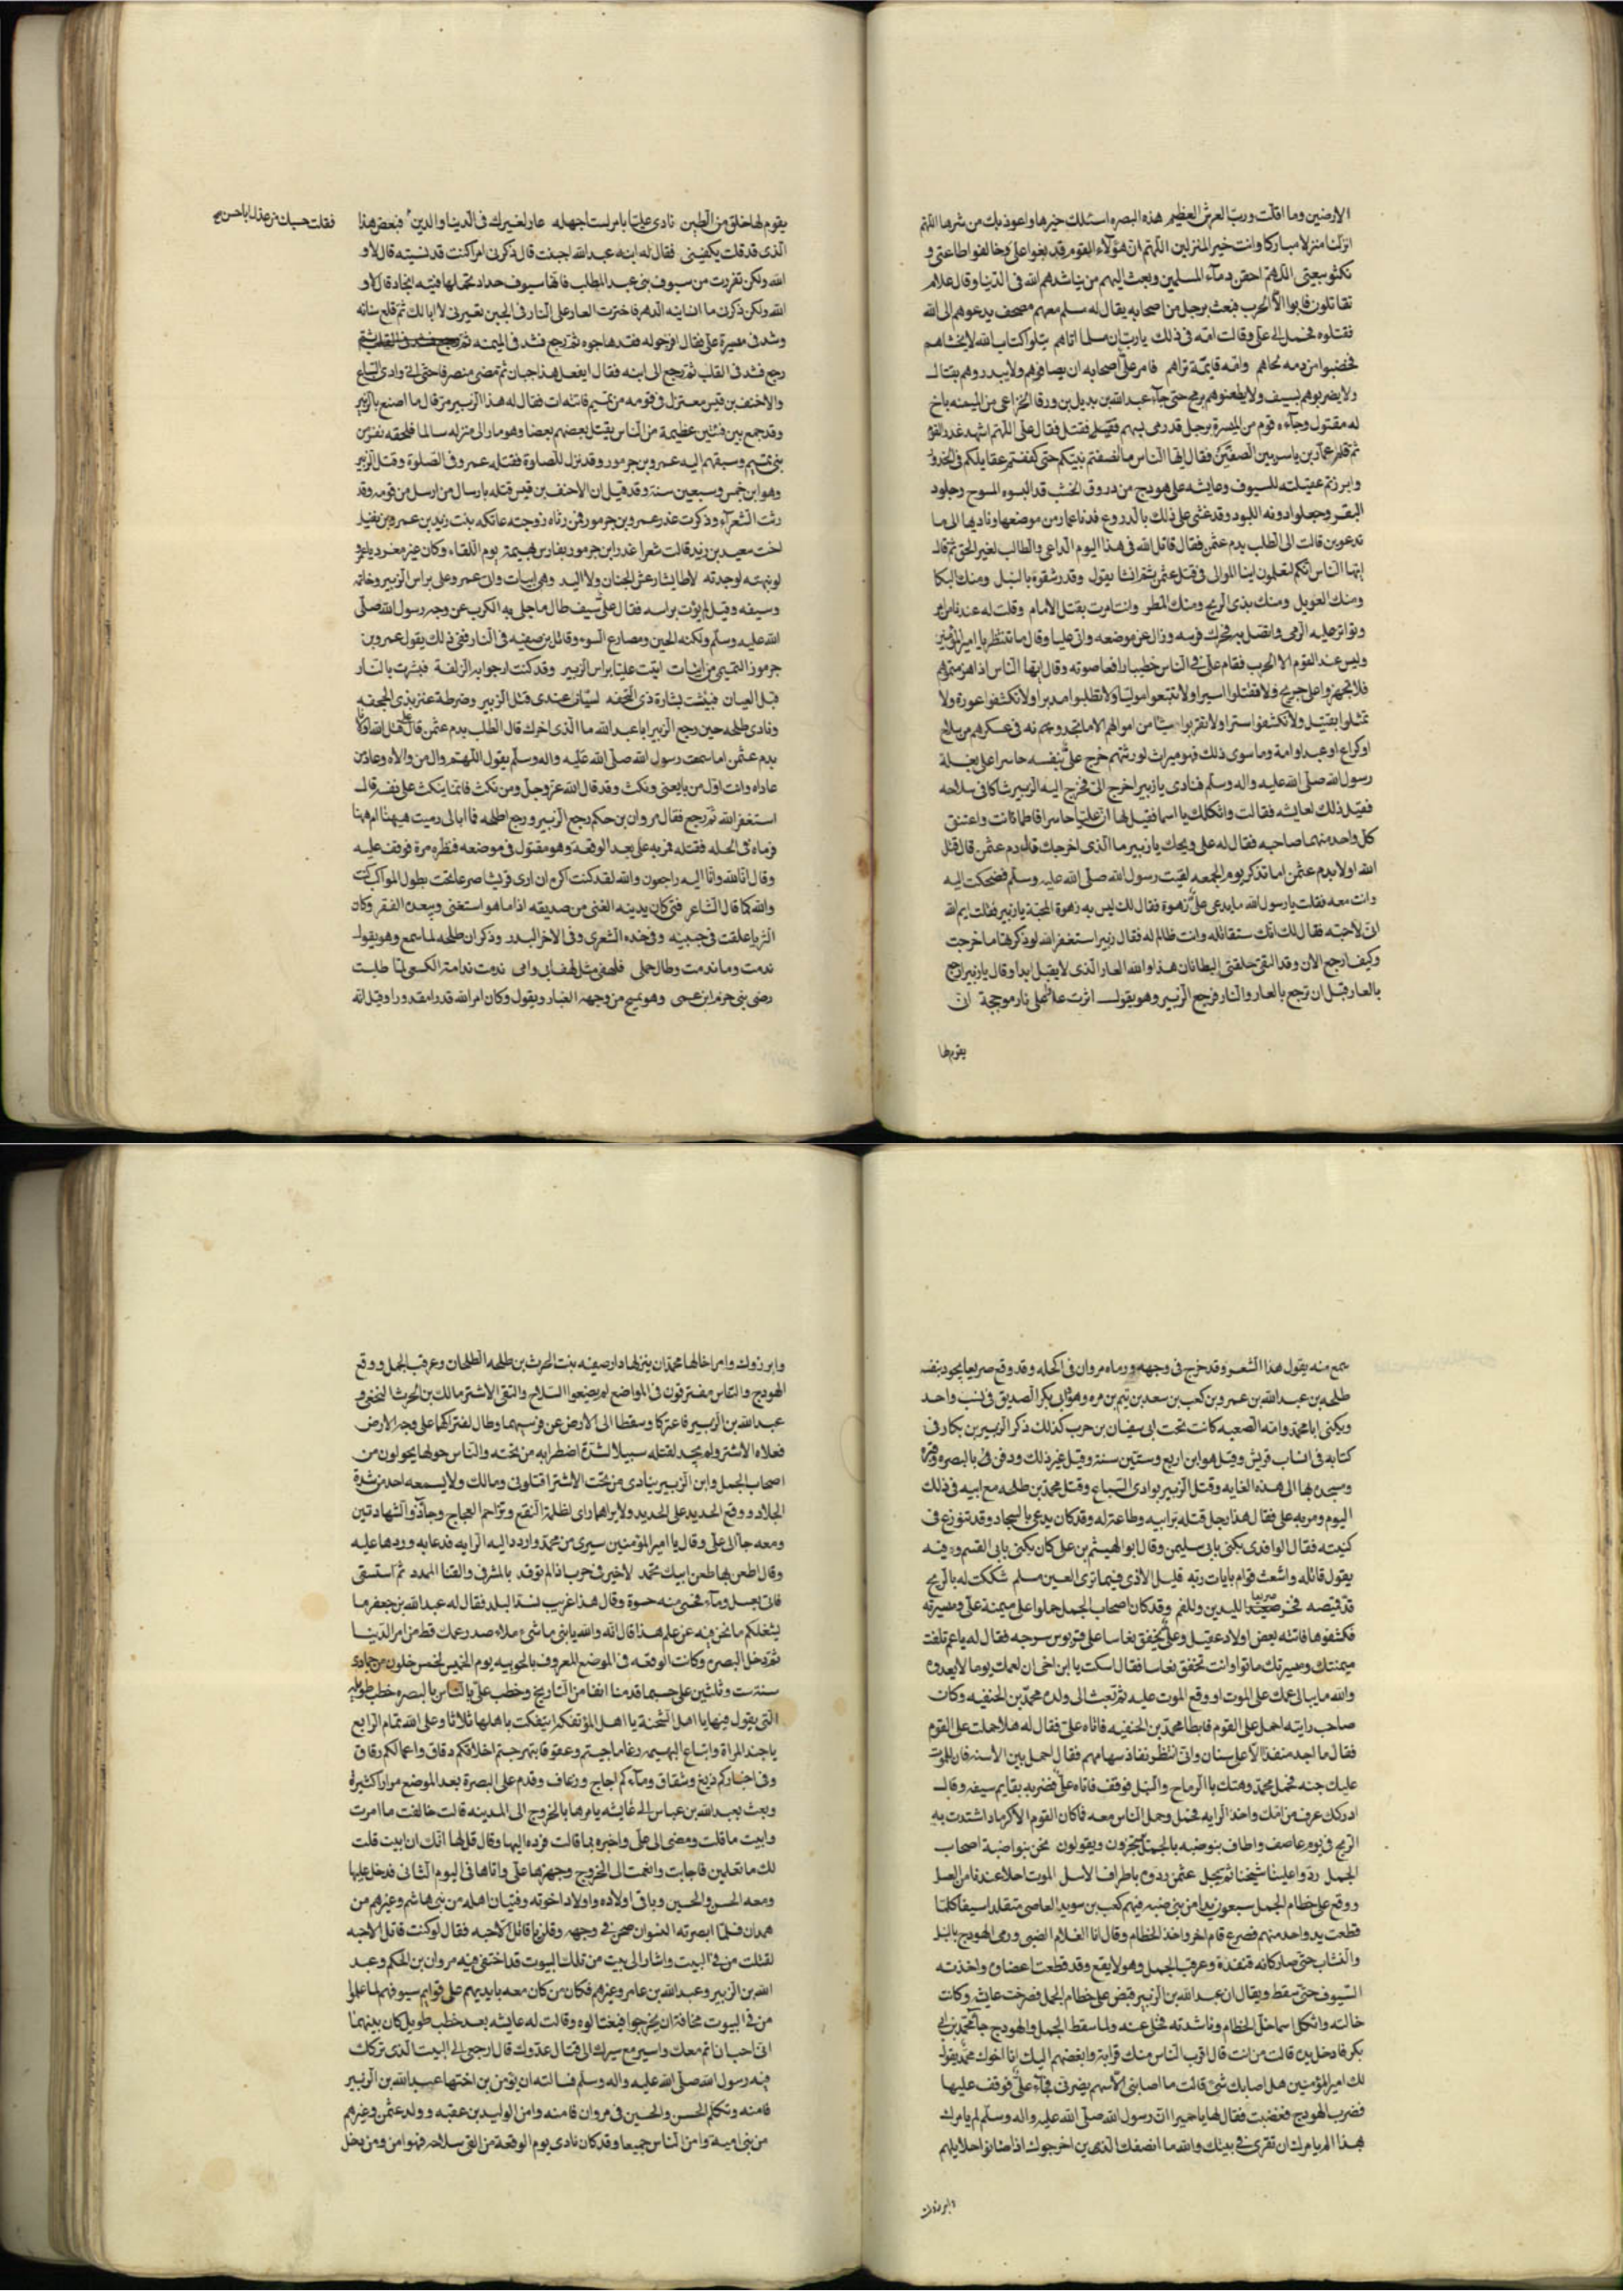 الارضين وما اقلت ورب العرش العظيم هذه البصره اسئلك خيرها واعوذ بك من شرها اللهم
انزلنا منزلا مباركا وانت خير المنزلين اللهم ان هؤلاء القوم قد بغوا على وخالفوا طاعتى و
نكثوا بيعتى اللهم احقن دماء المسلمين وبعث اليهم من يناشدهم الله فى الدنيا وقال علام
تقاتلون فابوا الا الحرب فبعث برجل من اصحابه يقال له مسلم معهم مصحف يدعوهم الى الله
فقتلوه فحمل الى على وقالت امه فى ذلك يارب ان مسلما اتاهم يتلو كتاب الله لا يخشاهم
فخضبوا من دمه لحاهم وامه قايمة تراهم فامر على اصحابه ان يصافوهم ولا يبدروهم بقتال
ولا يضربوهم بسيف ولا يطعنوهم برمح حتى جآء عبد الله بن بديل بن ورقا الخزاعى من الميمنه باخ
له مقتول وجآءه قوم من الميسرة برجل قد رمى بسهم فقتل فقال على اللهم اشهد غدر القوم
ثم قام عمار بن ياسر بين الصفين فقال ايها الناس ما انصفتم نبيكم حتى كففتم عقايلكم فى الخدور
وابرزتم عقيلته للسيوف وعايشه على هودج من دفوف الخشب قد البسوه المسوح وجلود
البقر وجعلوا دونه اللبود وقد غشى على ذلك بالدروع فدنا عمار من موضعها ونادیها الى ما
تدعوين قالت الى الطلب بدم عثمن فقال قاتل الله فى هذا اليوم الداعى والطالب لغير الحق ثم قال
ايها الناس انكم لتعلمون اينا اللوالى فى قتل عثمن ثم انشا يقول وقد رشقوه بالنبل ومنك البكا
ومنك العويل ومنك يذى الريح ومنك المطر وانت امرت بقتل الامام وقلت له عندنا من امر
وتواتر عليه الرمى واتصل به فحرك فرسه وزال عن موضعه واتى عليا وقال ما تنتظر يا امير المؤمنين
وليس عند القوم الا الحرب فقام على فى الناس خطيبا رافعا صوته وقال ايها الناس اذا هزمتموهم
فلا تجهزوا على جريح ولا تقتلوا اسيرا ولا تتبعوا موليا ولا تطلبوا مدبرا ولا تكشفوا عورة ولا
تمثلوا بقتيل ولا تكشفوا سترا ولا تقربوا شيئا من اموالهم الا ما تجدونه فى عسكرهم من سلاح
او كراع او عبد او امة وما سوى ذلك فهو ميراث لورثتهم خرج على بنفسه حاسرا على بغلة
رسول الله صلى الله عليه واله وسلم فنادى يا زبير اخرج الى فخرج اليه الزبير شاكا فى سلاحه
فقيل ذلك لعايشه فقالت واثكلك يا اسما فقيل لها ان عليا حاسرا فاطمانت واعتنق
كل واحد منهما صاحبه فقال له على ويحك يا زبير ما الذى اخرجك قال دم عثمن قال قتل
الله اولانا بدم عثمن اما تذكر يوم الجمعه لقيت رسول الله صلى الله عليه وسلم فضحكت اليه
وانت معه فقلت يا رسول الله ما يدعى على زهوة فقال لك ليس به زهوة اتحبه يا زبير فقلت ايم الله
انى لاحبه فقال لك انك ستقاتله وانت ظالم له فقال زبير استغفر الله لو ذكرتها ما خرجت
وكيف ارجع الان وقد التقى حلقتى البطانان هذا والله العار الذى لا يقبل ابدا وقال يا زبير ارجع
بالعار قبل ان ترجع بالعار والنار فرجع الزبير وهو يقول اثرت عارا على نار موججة ان
يقوم لها
يقوم لها خلق من الطين نادى على بامر لست اجهله عار لغيرك فى الدنيا والدين فبعض هذا
فقلت حسبك من عذل ابا حسن صح
الذى قد قلت يكفينى فقال له ابنه عبد الله اجبنت قال ذكرنى امرا كنت قد نسيته قال لا و
الله ولكن تفررت من سيوف بنى عبد المطلب فانها سيوف حداد تحملها فتيه انجاد قال لا و
الله ولكن ذكرت ما انسانيه الدهر فاخترت العار على النار افى الجبن تعيرنى لا ابا لك ثم قلع سنانه
وشد فى ميسرة على فقال افرجوا له فقد هاجوه ثم رجع فشد فى الميمنه ثم
رجع فشد فى القلب ثم رجع الى ابنه فقال ايفعل هذا جبان ثم مضى منصرفا حتى اتى وادى السباع
والاحنف بن قيس معتزل فى قومه من تميم فاتته ات فقال له هذا الزبير مر قال ما اصنع بالزبير
وقد جمع بين فئتين عظيمة من الناس يقتل بعضهم بعضا وهو مار الى منزله سالما فلحقه نفر من
بنى تميم وسبقهم اليه عمرو بن جرموز وقد نزل للصلوة فقتله عمرو فى الصلوة وقتل الزبير
وهو ابن خمس وسبعين سنة وقد قيل ان الاحنف بن قيس قتله بارسال من ارسل من قومه وقد
رثت الشعرآء وذكرت غدر عمرو بن جرموز فمن رثاه زوجته عاتكه بنت زيد بن عمرو بن نفيل
اخت سعيد بن زيد قالت شعرا غدر ابن جرموز بفارس بهيمة يوم اللقاء وكان غير معرد ياعمرو
لو نبهته لوجدته لا طايشا رعش الجنان ولا اليد وهى ابيات وان عمرو على براس الزبير وخاتمه
وسيفه وقيل لم يؤت براسه فقال على سيف طال ما جلى به الكرب عن وجه رسول الله صلى
الله عليه وسلم ولكنه الحين ومصارع السوء وقاتل بن صفيه فى النار ففى ذلك يقول عمرو بن
جرموز التميمى من ابيات اتيت عليا براس الزبير وقد كنت ارجو به الزلفة فبشرت بالنار
قبل العيان فبئست بشارة ذى التحفه لسيان عندى قتل الزبير وضرطة عنز بذى الجحفه
ونادى طلحه حين رجع الزبير ابا عبد الله ما الذى اخرك قال الطلب بدم عثمن قال على قتل الله اولانا
بدم عثمن اما سمعت رسول الله صلى الله عليه واله وسلم يقول اللهم وال من والاه وعاد من
عاداه وانت اول من بايعنى ونكث وقد قال الله عز وجل ومن نكث فانما ينكث على نفسه قال
استغفر الله ثم رجع فقال مروان بن حكم رجع الزبير ورجع طلحه فا ابالى رميت هيهنا ام ههنا
فرماه فى اكحله فقتله فمر به على بعد الوقعة وهو مقتول فى موضعه فنظره مرة فوقف عليه
وقال انا لله وانا اليه راجعون والله لقد كنت اكره ان ارى قريشا صرعا تحت بطون الكواكب كنت
والله كما قال الشاعر فتى كان يدنيه الغنى من صديقه اذا ما هو استغنى ويبعده الفقر وكان
الثريا علقت فى جبينه وفى خده الشعرى وفى الاخر البدر وذكر ان طلحه لما سمع وهو يقول
ندمت وما ندمت وطال حملى فلهفى مثل لهف ابى وامى ندمت ندامة الكسعى لما طلبت
رضى بنى حزم ابن عمى وهو يمسح من وجهه الغبار ويقول وكان امر الله قدرا مقدورا وقيل انه
سمع منه يقول هذا الشعر وقد خرج فى وجهه ورماه مروان فى اكحله وقد وقع صريعا يجود بنفسه
طلحه بن عبد الله بن عمرو بن كعب بن سعد بن تيم بن مره وهو ابى بكر الصديق فى نسب واحد
ويكنى ابا محمد وامه الصعبه كانت تحت ابى سفيان بن حرب كذلك ذكر الزبير بن بكار فى
كتابه فى انساب قريش وقتل وهو ابن اربع وستين سنة وقيل غير ذلك ودفن فى بالبصره وقبره
ومسجده بها الى هذه الغايه وقتل الزبير بوادى السباع وقتل محمد بن طلحه مع ابيه فى ذلك
اليوم ومر به على فقال هذا رجل قتله بر ابيه وطاعته له وقد كان يدعى بالسجاد وقد تنوزع فى
كنيته فقال الواقدى يكنى بابى سليمن وقال ابو الهيثم بن على كان يكنى بابى القسم وفيه
يقول قاتله واشعث قوام بايات ربه قليل الاذى فيما ترى العين مسلم شككت له بالرمح
قد قيصه فخر صريعا لليدين وللفم وقد كان اصحاب الجمل حملوا على ميمنة على وميسرته
فكشفوها فاتته بعض اولاد عقيل وعلى يخفق نعاسا على قربوس سرجه فقال له يا عم تلفت
ميمنتك وميسرتك ما توا وانت تخفق نعاسا فقال اسكت يا ابن اخى ان لعمك يوما لا يعدوه
والله ما يبالى عمك على الموت او وقع الموت عليه ثم بعث الى ولده محمد بن الحنفيه وكان
صاحب رايته احمل على القوم فابطا محمد بن الحنفيه فاتاه على فقال له هلا حملت على القوم
فقال ما اجد منفذا الا على سنان وانى انتظر نفاذ سهامهم فقال احمل بين الاسنه فان للموت
عليك جنه فحمل محمد وهتك بالرماح والنبل فوقف فاتاه على فضربه بقايم سيفه وقال
ادركك عرق من امك واخذ الرايه فحمل وحمل الناس معه فاكان القوم الا كرماد اشتدت به
الريح فى يوم عاصف واطاف بنو ضبه بالجمل يرتجزون ويقولون نحن بنو ضبة اصحاب
الجمل ردوا علينا شيخنا ثم بجل عثمن ردوه باطراف الاسل الموت احلا عندنا من العسل
ووقع على خطام الجمل سبعون يدا من بنى ضبه فيهم كعب بن سويد العاصى متقلدا سيفا كلما
قطعت يد واحد منهم فصرع قام اخر واخذ الخطام وقال انا الغلام الضبى ورمى الهودج بالنبل
والنشاب حتى صار كانه قنفذة وعرقب الجمل وهو لا يقع وقد قطعت اعضاؤه واخذته
السيوف حتى سقط ويقال ان عبد الله بن الزبير قبض على خطام الجمل فصرخت عايشه وكانت
خالته واثكل اسما خل الخطام وناشدته فخل عنه ولما سقط الجمل والهودج جآء محمد بن ابى
بكر فادخل يده قالت من انت قال اقرب الناس منك قرابة وابغضهم اليك انا اخوك محمد يقول
لك امير المؤمنين هل اصابك شئ قالت ما اصابنى الا سهم يضرنى فجآء على فوقف عليها
فضرب الهودج فغضبت فقال لها يا حميرا ان رسول الله صلى الله عليه واله وسلم لم يامرك
بهذا الم يامرك ان تقرى فى بيتك والله ما انصفك الذين اخرجوك اذا صانوا حلايلهم
وابرزوك
وابرزوك وامر اخاها محمدا ان ينزلها دار صفيه بنت الحرث بن طلحه الطلحان وعرقب الجمل ووقع
الهودج والناس مفترقون فى المواضع لم يضعوا السلاح والتقى الاشتر مالك بن الحرث النخعى و
عبد الله بن الزبير فاعتركا وسقطا الى الارض عن فرسيهما وطال اعتراكهما على وجه الارض
فعلاه الاشتر ولم يجد لقتله سبيلا لشدة اضطرابه من تحته والناس حولها يجولون من
اصحاب الجمل وابن الزبير ينادى من تحت الاشتر اقتلونى ومالك ولا يسمعه احد من شدة
الجلاد ووقع الحديد على الحديد ولا يراهما راى لظلمة النقع وتزاحم العجاج وجآء ذو الشهادتين
ومعه جا الى على وقال يا امير المؤمنين سيرى من محمد واردد اليه الرايه فدعا به وردها عليه
وقال اطعن بها طعن ابيك تحمد لا خير فى حرب اذا لم توقد بالمشرفى والقنا المسدد ثم استسقى
فاتى بعسل ومآء فحسى منه حسوة وقال هذا غريب لهذا البلد فقال له عبد الله بن جعفر ما
يشغلكم ما نحن فيه عن علم هذا قال انه والله يا بنى ما شئ ملاء صدر عمك قط من امر الدنيا
ثم دخل البصره وكانت الوقعه فى الموضع المعروف بالخريبه يوم الخميس لخمس خلون من جمادى
سنه ست وثلثين على حسب ما قدمنا انفا من التاريخ وخطب على بالناس بالبصره خطب طويله
التى يقول فيها يا اهل السبخة يا اهل المؤتفكه ائتفكت باهلها ثلاثا وعلى الله تمام الرابع
يا جند المراة واتباع البهيمه رغا فاجبتم وعقر فانهزمتم اخلاقكم دقاق واعمالكم رقاق
ودينكم زيغ وشقاق ومآءكم اجاج وزعاف وقدم على البصرة بعد الموضع مرارا كثيرة
وبعث بعبد الله بن عباس الى عايشه يامرها بالخروج الى المدينه قالت خالفت ما امرت
وابيت ما قلت ومضى الى على واخبره بما قالت فرده اليها وقال قل لها انك ان ابيت قلت
لك ما تعلمين فاجابت وانعمت الى الخروج وجهزها على واتاها فى اليوم الثانى فدخل عليها
ومعه الحسن والحسين وباقى اولاده واولاد اخوته وفتيان اهله من بنى هاشم وغيرهم من
همدان فلما ابصرته النسوان صحن فى وجهه وقلن يا قاتل الاحبه فقال لو كنت قاتل الاحبه
لقتلت من فى البيت واشار الى بيت من تلك البيوت قد اختفى فيه مروان بن الحكم وعبد
الله بن الزبير وعبد الله بن عامر وغيرهم فكان من كان معه بايديهم على قوايم سيوفهم لما علموا
من فى البيوت مخافة ان يخرجوا فيغتالوه وقالت له عايشه بعد خطب طويل كان بينهما
انى احب ان اقم معك واسير مع سيرك الى قتال عدوك قال ارجعى الى البيت الذى تركك
فيه رسول الله صلى الله عليه واله وسلم فسالته ان يؤمن بن اختها عبد الله بن الزبير
فامنه وتكلم الحسن والحسين فى مروان فامنه وامن الوليد بن عقبه وولد عثمن وغيرهم
من بنى اميه وامن الناس جميعا وقد كان نادى يوم الوقعة من القى سلاحه فهو امن ومن دخل